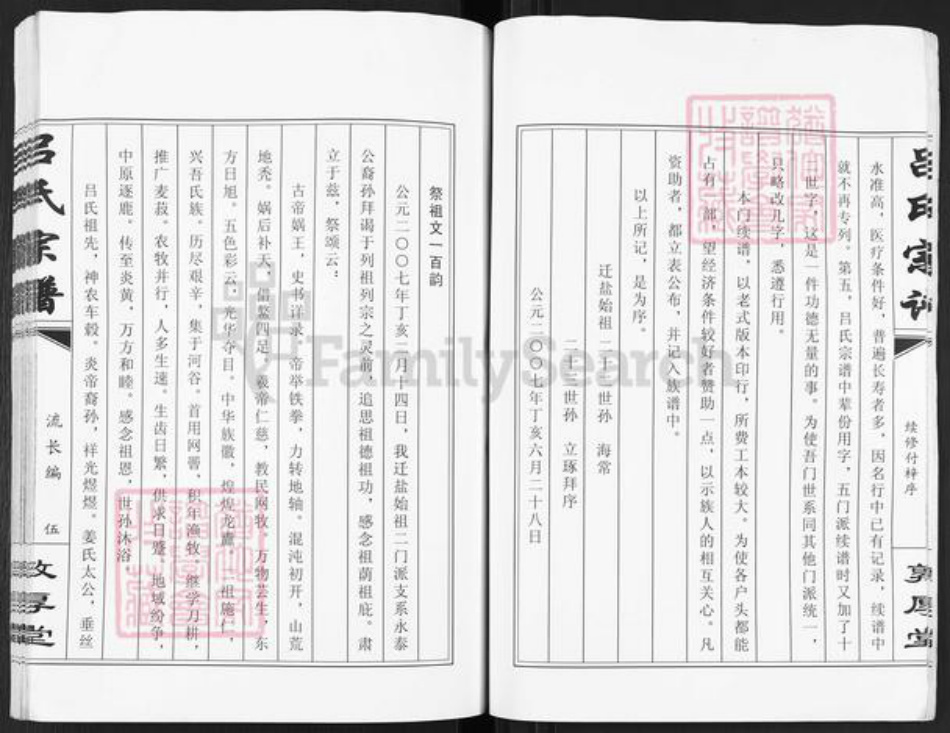 吕氏宗谱
续修付梓序
敦厚堂
水准高，医疗条件好，普遍长寿者多，因名行中已有记录，续谱中
就不再专列。第五，吕氏宗谱中辈份用字，五门派续谱时又加了十
一世字，这是一件功德无量的事。为使吾门世系同其他门派统一，
只略改几字，悉遵行用。
本门续谱，以老式版本印行，所费工本较大。为使各户头都能
占有一部，望经济条件较好者赞助一点，以示族人的相互关心。凡
资助者，都立表公布，并记入族谱中。
以上所记，是为序。
迁盐始祖 二十一世孙 海常
二十二世孙 立琢拜序
公元二〇〇七年丁亥六月二十八日
祭祖文一百韵
公元二〇〇七年丁亥二月十四日，我迁盐始祖二门派支系永泰
公裔孙拜谒于列祖列宗之灵前，追思祖德祖功，感念祖荫祖庇。肃
立于兹，祭颂云：
古帝娲王，史书详录。帝举铁拳，力转地轴。混沌初开，山荒
地秃。娲后补天，借鳌四足。羲帝仁慈，教民网牧。万物芸生，东
方日旭。五色彩云，光华夺目。中华族徽，煌煌龙纛。二祖施仁，
兴吾氏族。历尽艰辛，集于河谷。首用网罟，积年渔牧。继学刀耕，
推广麦菽。农牧并行，人多生速。生齿日繁，供求日蹙。地域纷争，
中原逐鹿。传至炎黄，万方和睦。感念祖恩，世孙沐浴。
吕氏祖先，神农车毂。炎帝裔孙，祥光煜煜。姜氏太公，垂丝
吕氏宗谱
流长编
伍
敦厚堂
FamilySearch